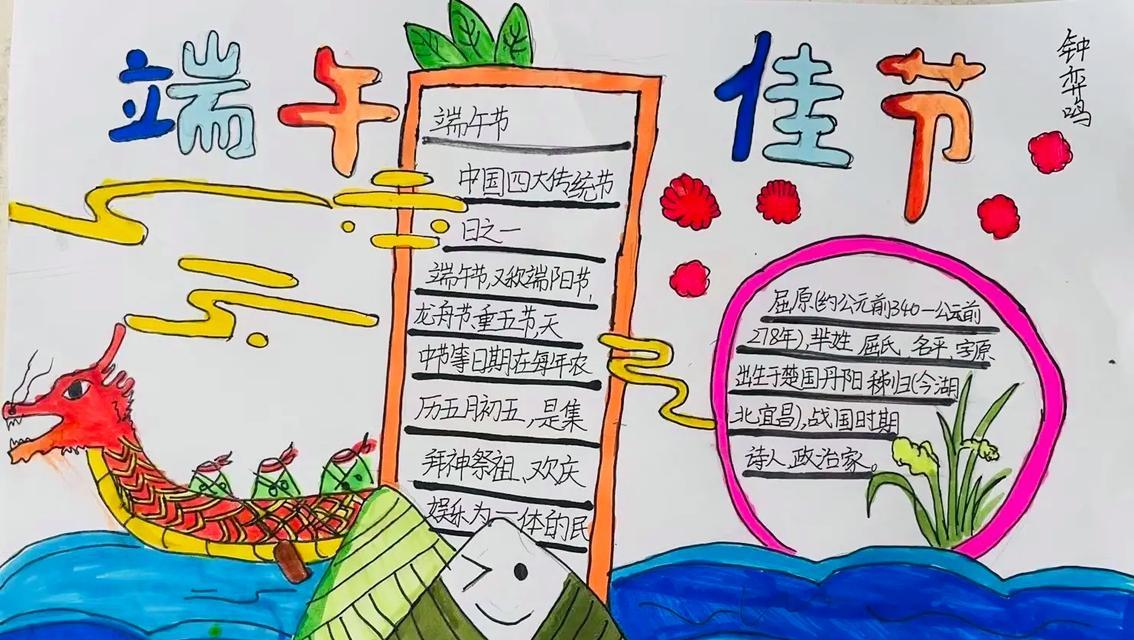 端午佳节
钟弈鸣
端午节
中国四大传统节
日之一
端午节,又称端阳节,
龙舟节、重五节、天
中节等日期在每年农
历五月初五,是集
拜神祭祖、欢庆
娱乐为一体的民
屈原(约公元前340—公云前
278年),芈姓、屈氏、名平,字原
出生于楚国丹阳秭归(今湖
北宜昌),战国时期
诗人、政治家。